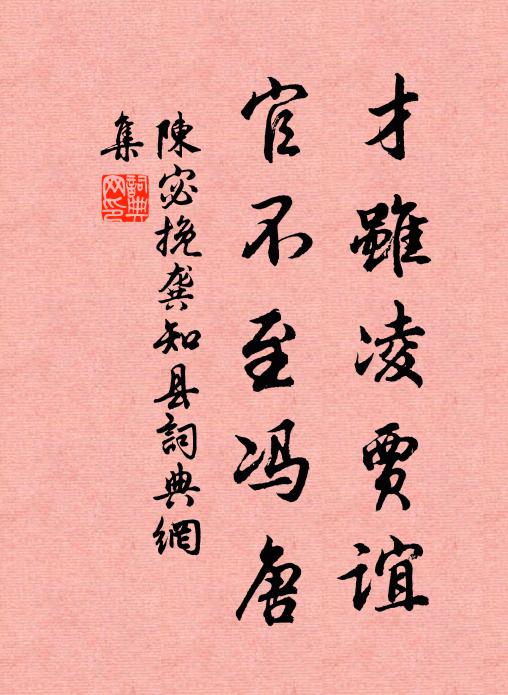 才雖凌賈誼
官不至冯唐
陳宓挽龚知县詞典網
集
詞典
网印